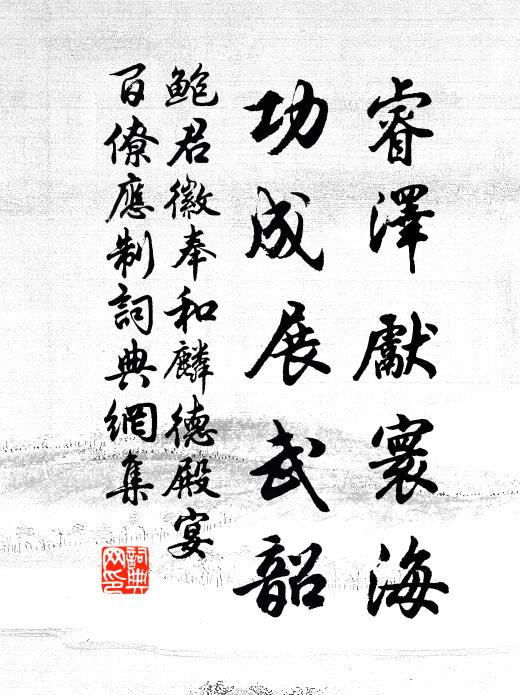 睿澤獻寰海
功成展武韶
鮑君徽奉和麟德殿宴
百僚應制詞典網集
詞典
网印